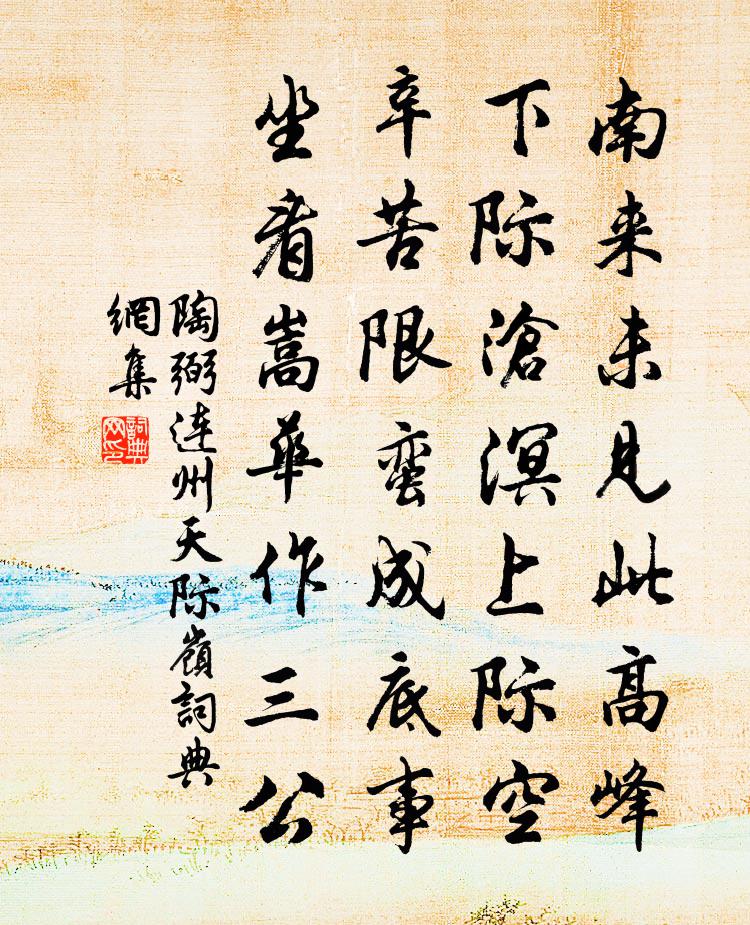 南来未见此高峰
下际滄溟上际空
辛苦限蛮成底事
坐看嵩華作三公
陶弼连州天际嶺詞典
網集
詞典
网印